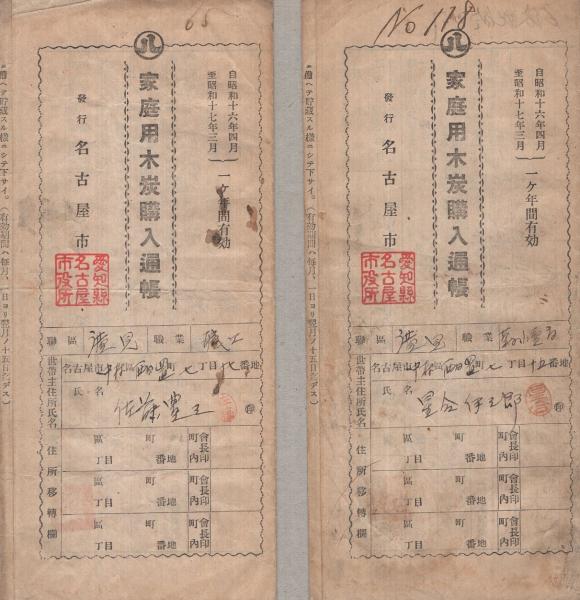 No 178
自昭和十六年四月
至昭和十七年三月
一ケ年間有効
八
家庭用木炭購入通帳
發行 名古屋市
愛知縣
名古屋
市役所
聯區
職業
世帶主住所氏名
名古屋市中村區 町七丁目十五番地
氏名
㊞
住所移轉欄
區 町
丁目 番地
町內會長印
區 町
丁目 番地
町內會長印
區 町
丁目 番地
町內會長印
65
自昭和十六年四月
至昭和十七年三月
一ケ年間有効
八
家庭用木炭購入通帳
發行 名古屋市
愛知縣
名古屋
市役所
聯區
職業 職工
世帶主住所氏名
名古屋市中村區 町七丁目 番地
氏名
佐藤豊
㊞
住所移轉欄
區 町
丁目 番地
町內會長印
區 町
丁目 番地
町內會長印
區 町
丁目 番地
町內會長印
備ヘテ貯藏スル樣ニシテ下サイ。(有効期間ハ每月、一日ヨリ翌月ノ十五日迄デス)